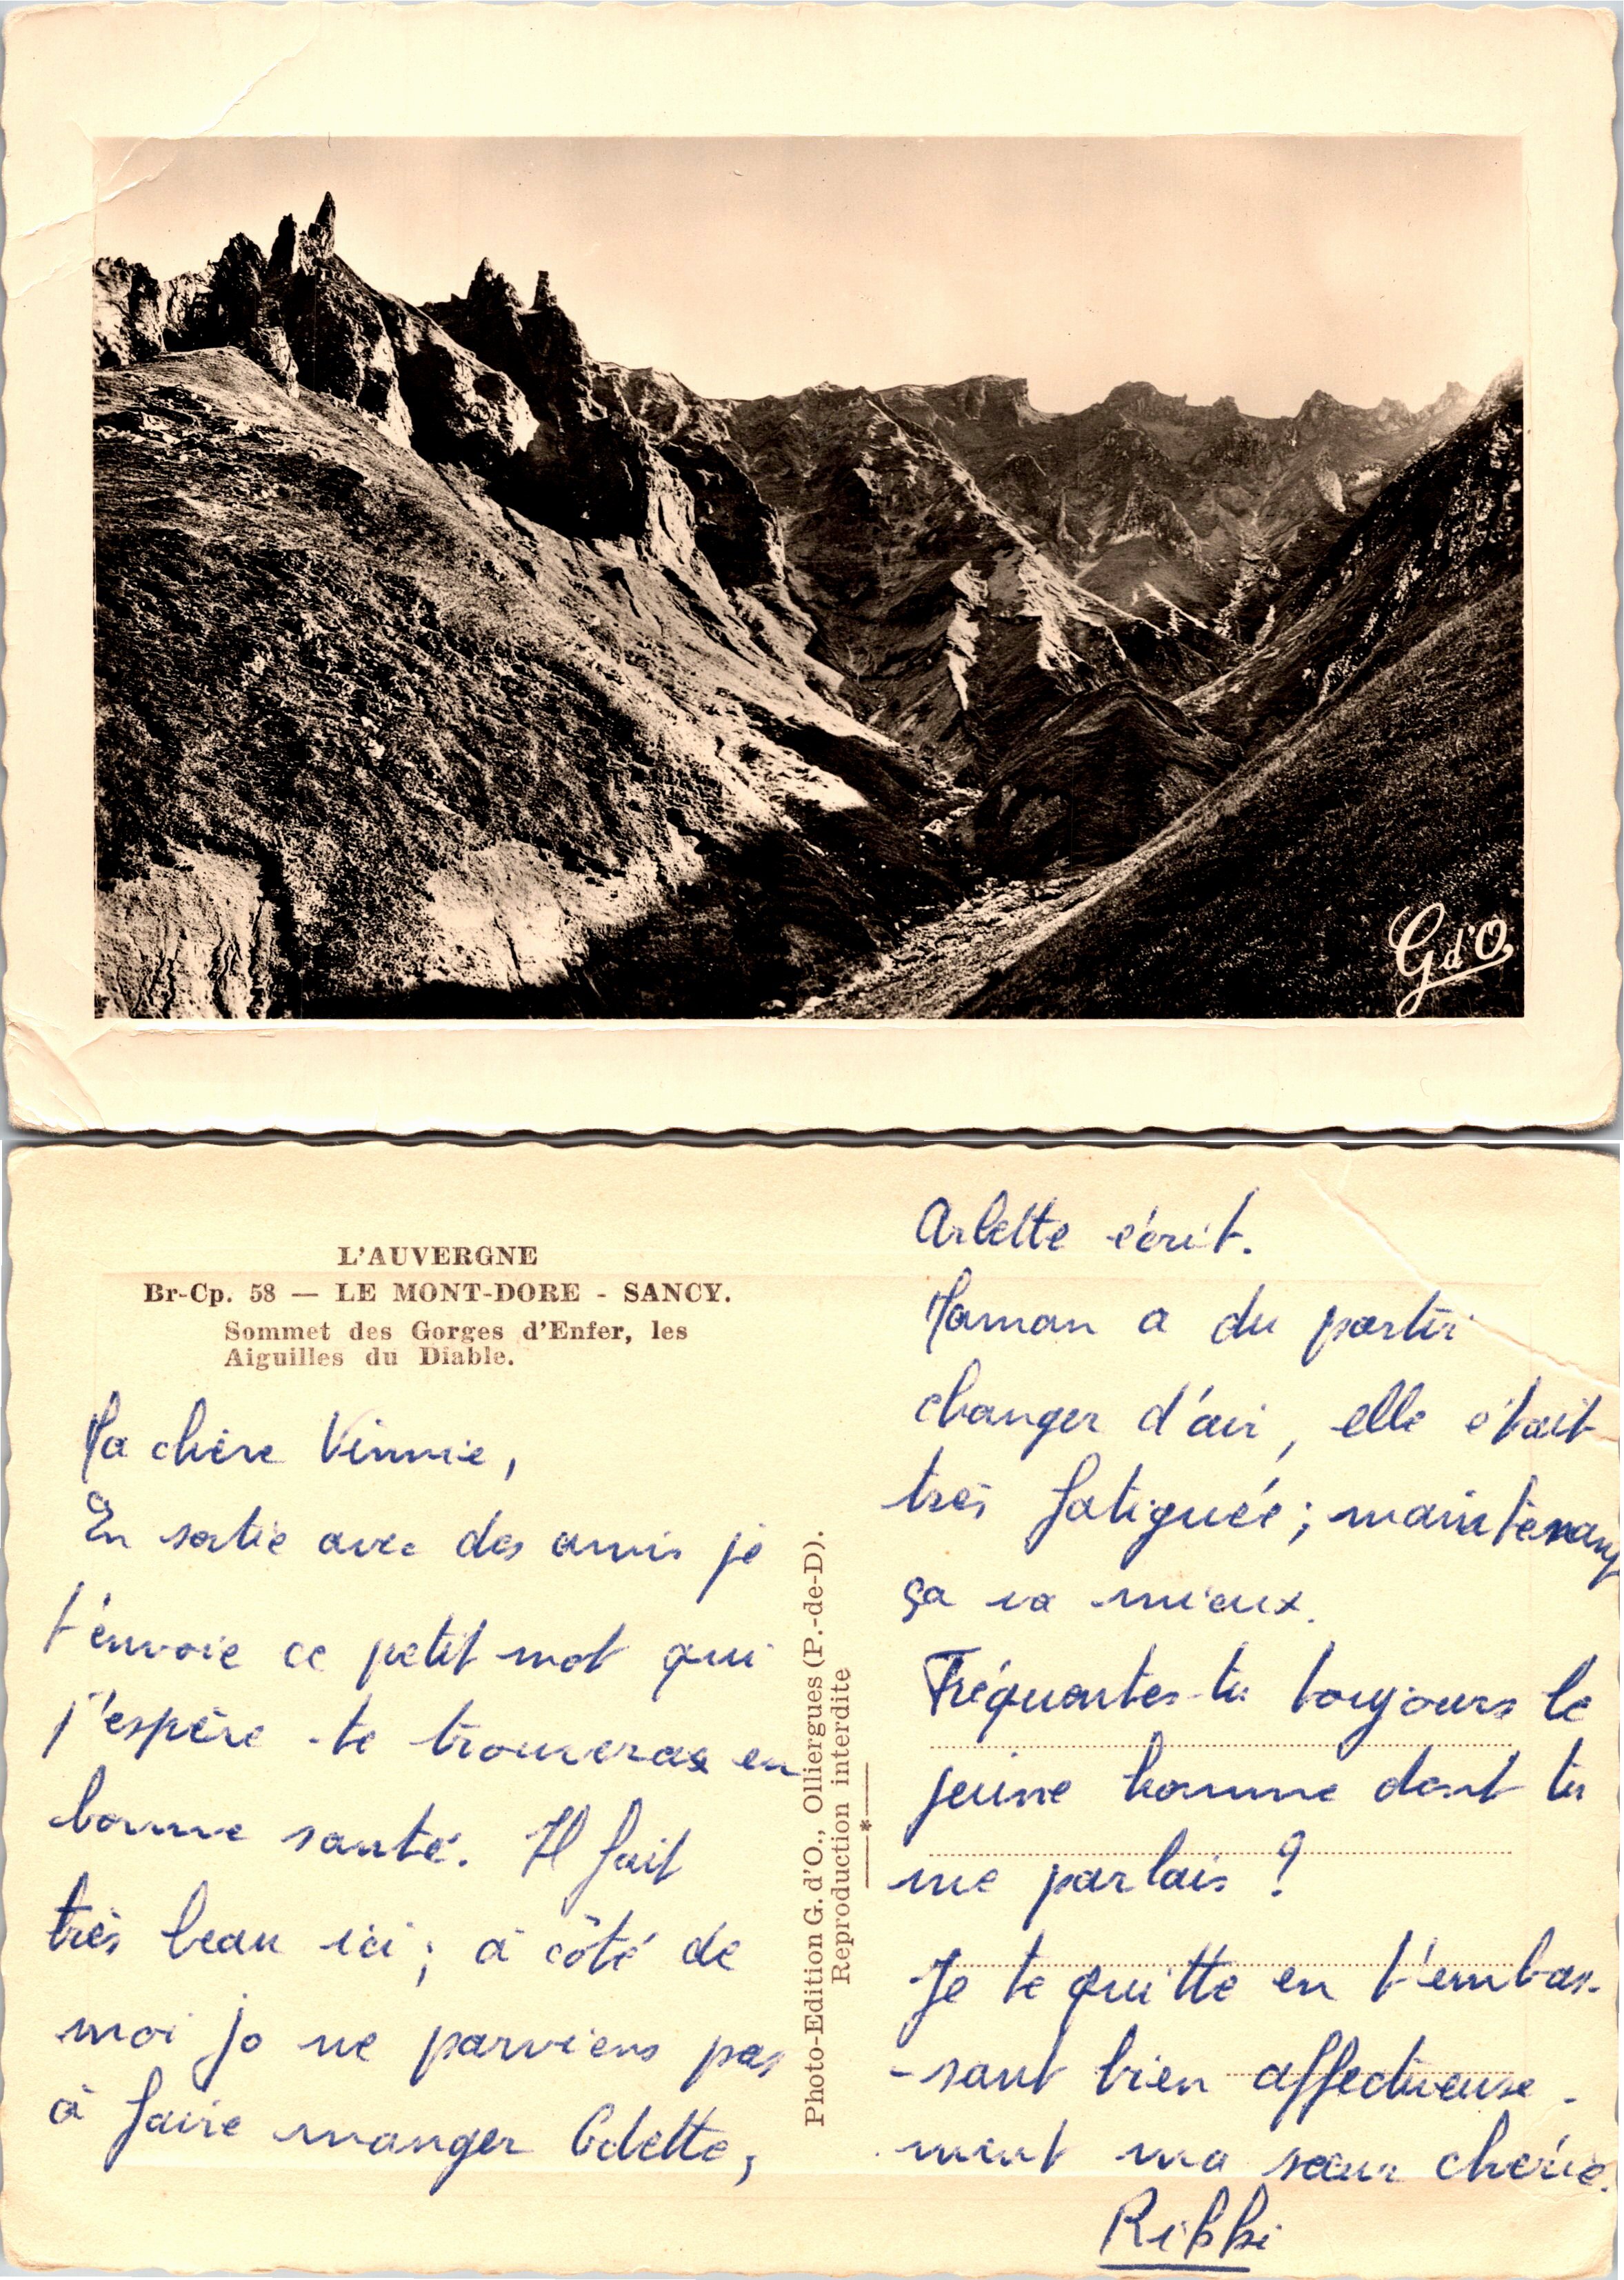 G d'O
L'AUVERGNE
Br-Cp. 58 — LE MONT-DORE - SANCY.
Sommet des Gorges d'Enfer, les
Aiguilles du Diable.
Ma chère Vinnie,
En sortie avec des amis je
t'envoie ce petit mot qui
j'espère te trouveras en
bonne santé. Il fait
très beau ici ; à côté de
moi Jo ne parviens pas
à faire manger Odette,
Photo-Edition G. d'O., Olliergues (P.-de-D).
Reproduction interdite
Arlette écrit.
Maman a du partir
changer d'air, elle était
très fatiguée ; maintenant
ça va mieux.
Fréquentes-tu toujours le
jeune homme dont tu
me parlais ?
Je te quitte en t'embas-
-sant bien affectueuse-
ment ma sœur chérie.